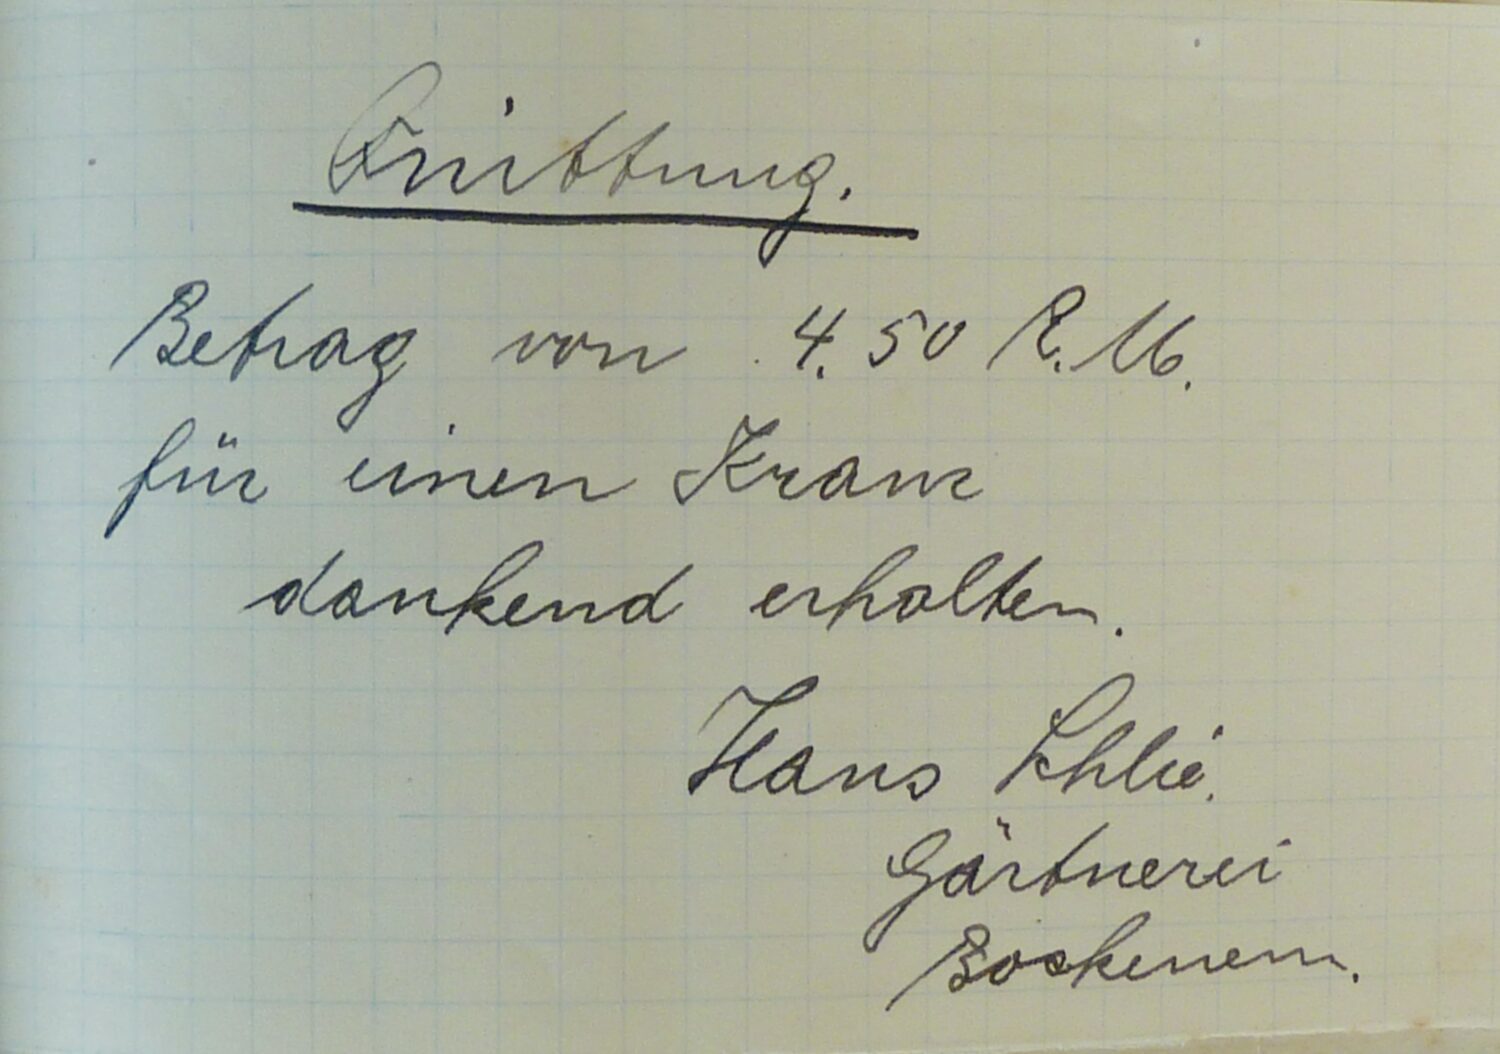 Quittung.
Betrag von 4.50 R.M.
für einen Kranz
dankend erhalten.
Hans Schlie.
Gärtnerei
Bockenem.